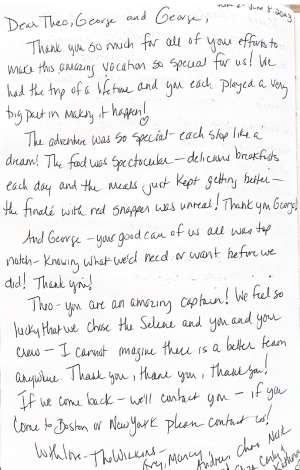 June 4 2023
Dear Theo, George and George,
Thank you so much for all of your efforts to
make this amazing vacation so special for us! We
had the trip of a lifetime and you each played a very
big part in making it happen!
The adventure was so special - each stop like a
dream! The food was spectacular - delicious breakfasts
each day and the meals just kept getting better -
the finale with red snapper was unreal! Thank you George!
And George - your good care of us all was top
notch - knowing what we'd need or want before we
did! Thank you!
Theo - you are an amazing captain! We feel so
lucky that we chose the Selene and you and your
crew - I cannot imagine there is a better team
anywhere. Thank you, thank you, Thank you!
If we come back - we'll contact you - if you
come to Boston or New York please contact us!
With love - The Wickens -
Nancy Andrew Chris Nick